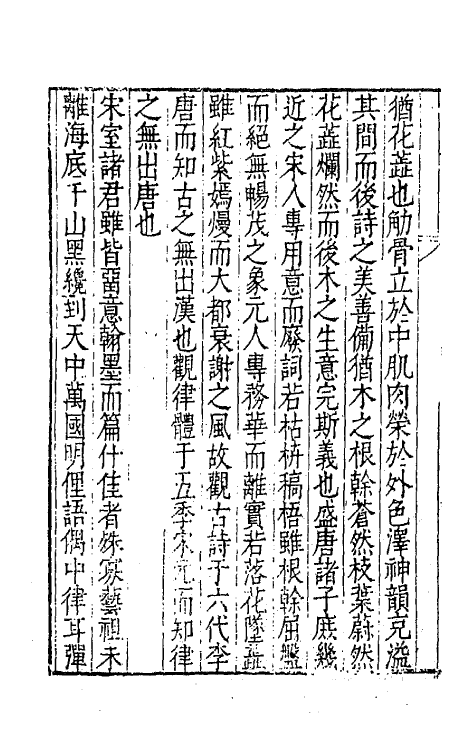 猶花蘂也觔骨立於中肌肉榮於外色澤神韻充溢
其間而後詩之美善備猶木之根榦蒼然枝葉蔚然
花蘂爛然而後木之生意完斯義也盛唐諸子庶幾
近之宋人專用意而廢詞若枯枿稿梧雖根榦屈盤
而絕無暢茂之象元人專務華而離實若落花墜蘂
雖紅紫嫣熳而大都衰謝之風故觀古詩于六代李
唐而知古之無出漢也觀律體于五季宋元而知律
之無出唐也
宋室諸君雖皆留意翰墨而篇什佳者殊寡藝祖未
離海底千山黑纔到天中萬國明俚語偶中律耳彈